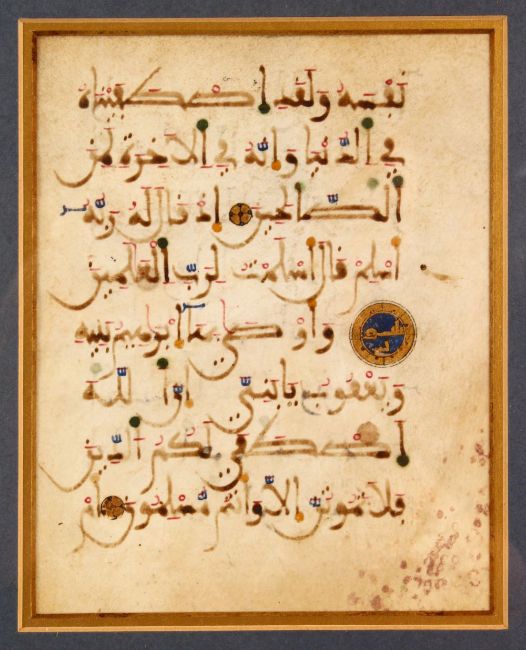 نَفْسَهُۥ وَلَقَدِ اِصْطَفَيْنَٰهُ
فِي الدُّنْيَا وَإِنَّهُۥ فِي الْأَخِرَةِ لَمِنَ
الصَّٰلِحِينَ إِذْ قَالَ لَهُۥ رَبُّهُۥ
أَسْلِمْ قَالَ أَسْلَمْتُ لِرَبِّ الْعَٰلَمِينَ
وَأَوْصَىٰ بِهَا إِبْرَٰهِيمُ بَنِيهِ
وَيَعْقُوبُ يَٰبَنِيَّ إِنَّ اللَّهَ
اَصْطَفَىٰ لَكُمُ الدِّينَ
فَلَا تَمُوتُنَّ إِلَّا وَأَنْتُمْ مُسْلِمُونَ أَمْ